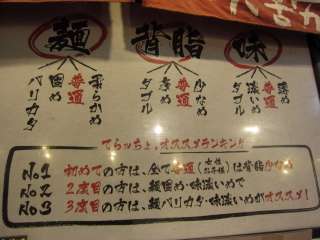 麺
背脂
味
柔らかめ
普通
固め
バリカタ
少なめ
普通
多め
ダブル
薄め
普通
濃いめ
てらっちょ。オススメランキング
No.1 初めての方は、全て普通(女性お子様)は背脂少なめ
No2 2度目の方は、麺固め・味濃いめで
No3 3度目の方は、麺バリカタ・味濃いめがオススメ!